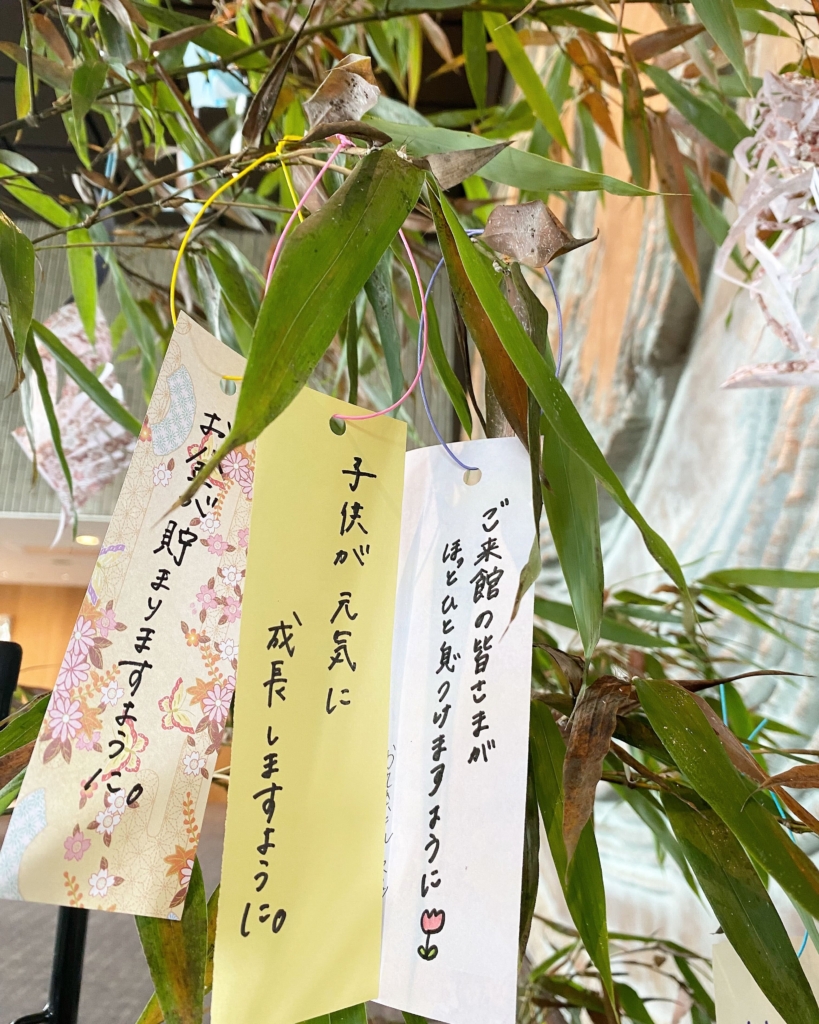 ご来館の皆さまが
ほっとひと息つけますように
子供が元気に
成長しますように。
お金が貯まりますように。